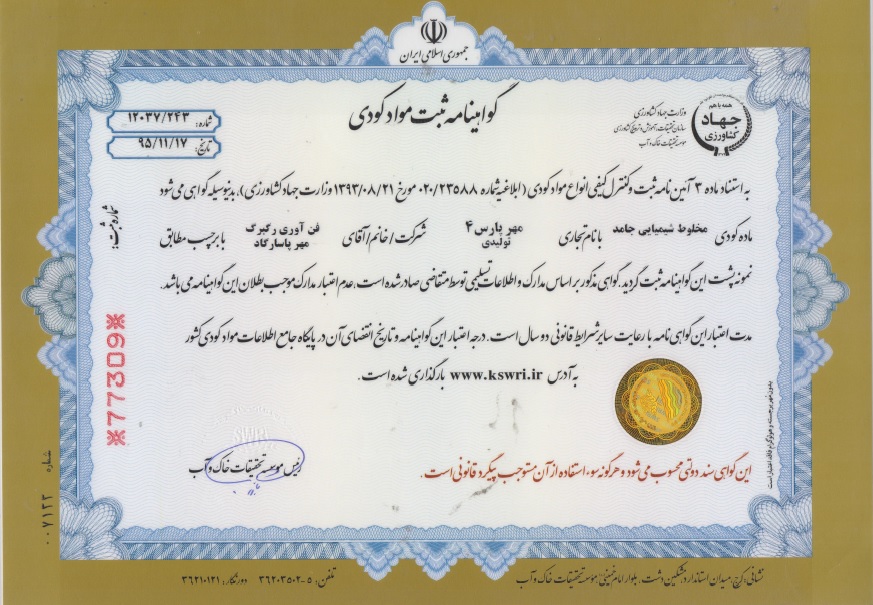 جمهوری اسلامی ایران
گواهینامه ثبت مواد کودی
همه با هم
جهاد
کشاورزی
وزارت جهاد کشاورزی
سازمان تحقیقات، آموزش و ترویج کشاورزی
موسسه تحقیقات خاک و آب
شماره: ۱۲۰۳۷/۲۴۳
تاریخ: ۹۵/۱۱/۱۷
به استناد ماده ۳ آئین نامه ثبت و کنترل کیفی انواع مواد کودی (ابلاغیه شماره ۰۲۰/۲۳۵۸۸ مورخ ۱۳۹۳/۰۸/۲۱ وزارت جهاد کشاورزی)، بدینوسیله گواهی می شود
ماده کودی مخلوط شیمیایی جامد با نام تجاری مهر پارس ۴ تولیدی شرکت/خانم/آقای فن آوری رگبرگ مهر پاسارگاد با برچسب مطابق
نمونه پشت این گواهینامه ثبت گردید. گواهی مذکور بر اساس مدارک و اطلاعات تسلیمی توسط متقاضی صادر شده است، عدم اعتبار مدارک موجب بطلان این گواهینامه می باشد.
مدت اعتبار این گواهی نامه با رعایت سایر شرایط قانونی دو سال است. درجه اعتبار این گواهینامه و تاریخ انقضای آن در پایگاه جامع اطلاعات مواد کودی کشور
به آدرس www.kswri.ir بارگذاری شده است.
شماره ثبت:
※77309※
رئیس موسسه تحقیقات خاک و آب
SWRI
این گواهی سند دولتی محسوب می شود و هرگونه سوء استفاده از آن مستوجب پیگرد قانونی است.
بدون مهر برجسته و هولوگرام فاقد اعتبار است
شماره ۰۰۷۱۲۳
نشانی: کرج، میدان استاندارد، مشکین دشت، بلوار امام خمینی، موسسه تحقیقات خاک و آب
تلفن: ۵-۳۶۲۰۳۵۰۲ دورنگار: ۳۶۲۱۰۱۲۱